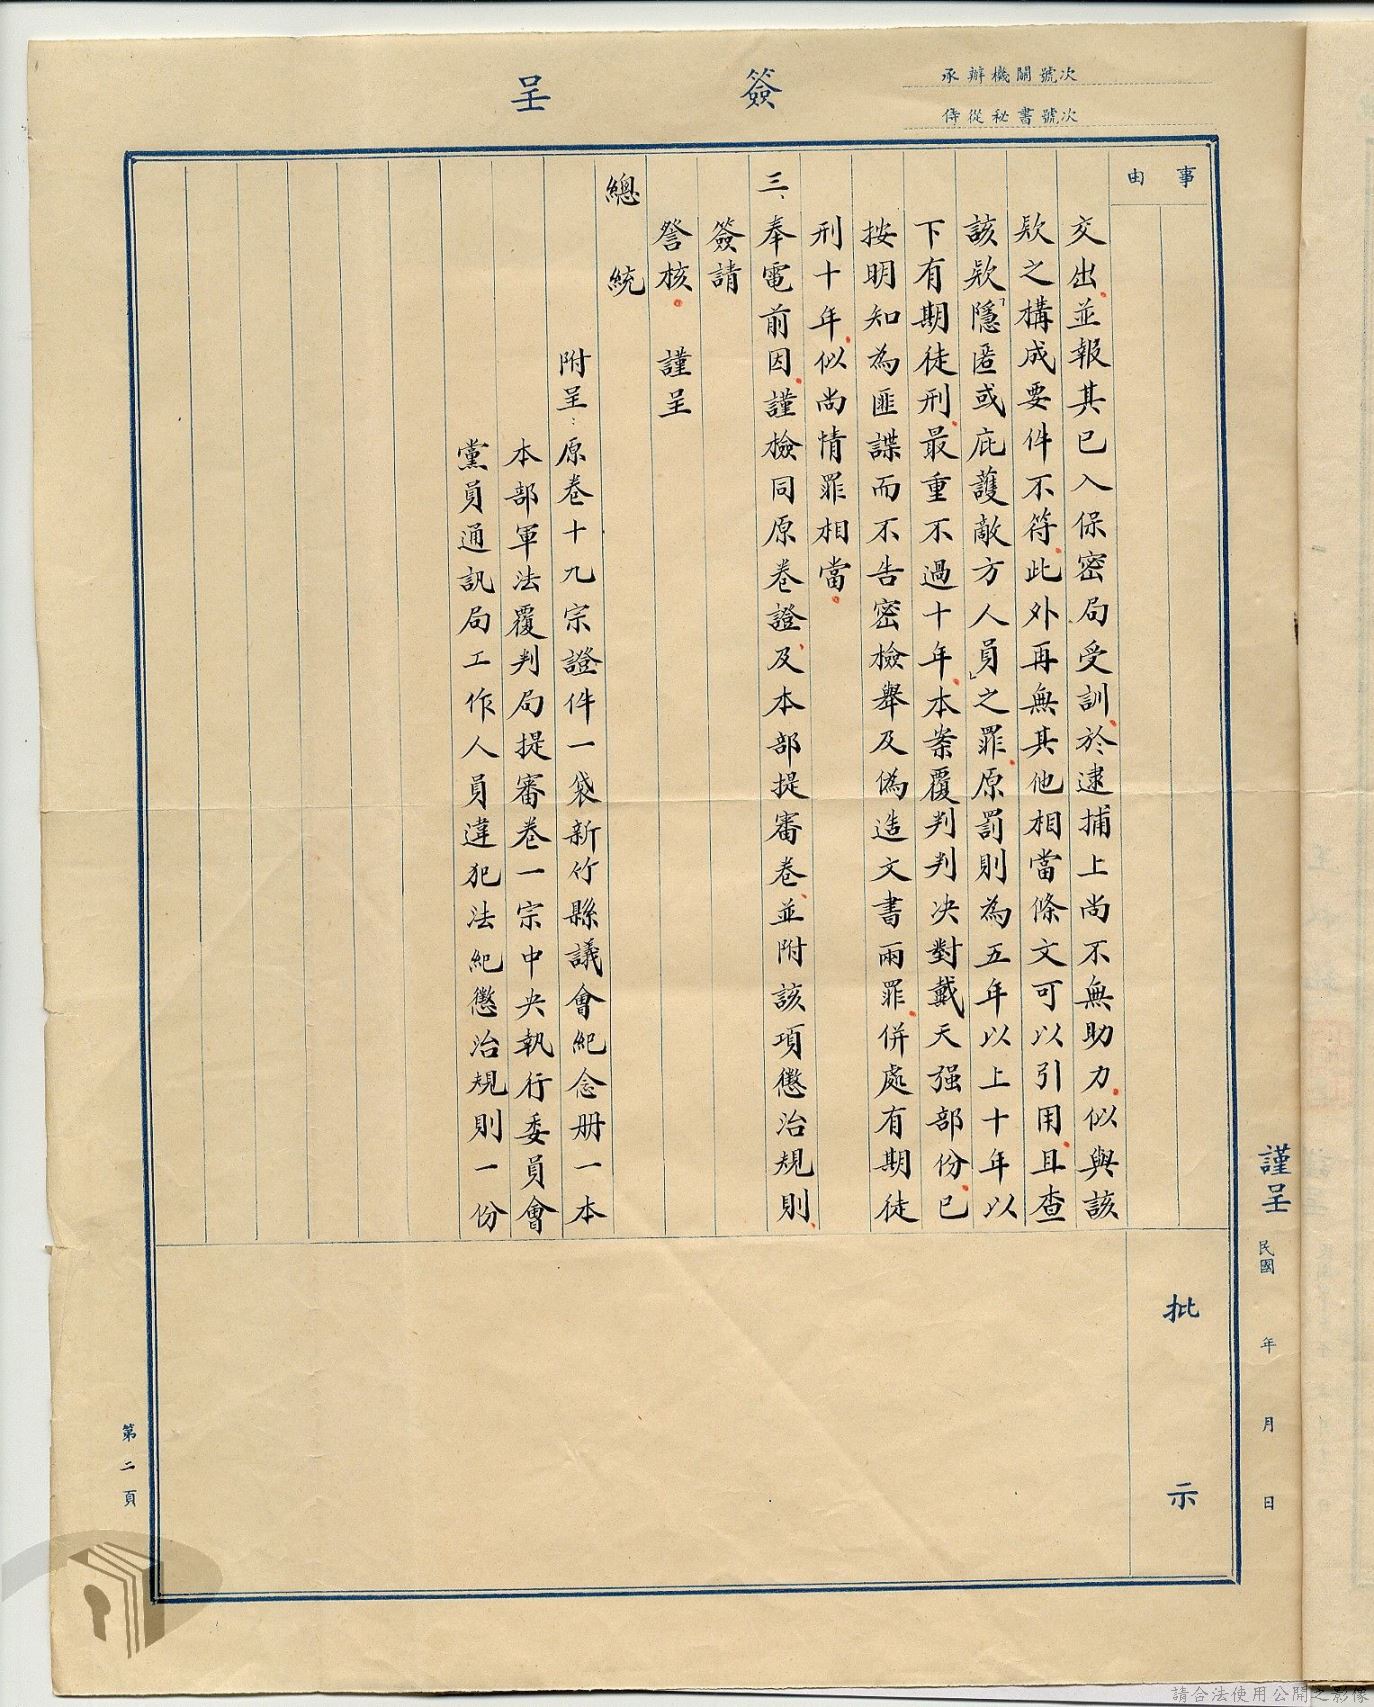 簽呈
承辦機關號次
侍從秘書號次
事由
交出並報其已入保密局受訓於逮捕上尚不無助力似與該
欵之構成要件不符此外再無其他相當條文可以引用且查
該欵「隱匿或庇護敵方人員」之罪原罰則為五年以上十年以
下有期徒刑最重不過十年本案覆判判決對戴天强部份已
按明知為匪諜而不告密檢舉及偽造文書兩罪併處有期徒
刑十年似尚情罪相當。
三、奉電前因謹檢同原卷證及本部提審卷並附該項懲治規則
簽請
詧核。謹呈
總統
附呈：原卷十九宗證件一袋新竹縣議會紀念册一本
本部軍法覆判局提審卷一宗中央執行委員會
黨員通訊局工作人員違犯法紀懲治規則一份
批示
謹呈
民國 年 月 日
第二頁
請合法使用公開之影像